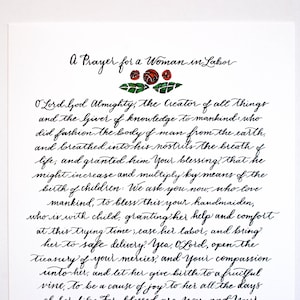 A Prayer for a Woman in Labor
O Lord God Almighty, the Creator of all things
and the Giver of knowledge to mankind who
did fashion the body of man from the earth
and breathed into his nostrils the breath of
life, and granted him Your blessing, that he
might increase and multiply by means of the
birth of children. We ask you now, who love
mankind, to bless this your handmaiden,
who is with child, granting her help and comfort
at this trying time, ease her labor, and bring
her to safe delivery. Yea, O Lord, open the
treasury of your mercies, and Your compassion
unto her, and let her give birth to a fruitful
vine, to be a cause of joy to her all the days
of her life. For blessed are You, and Your